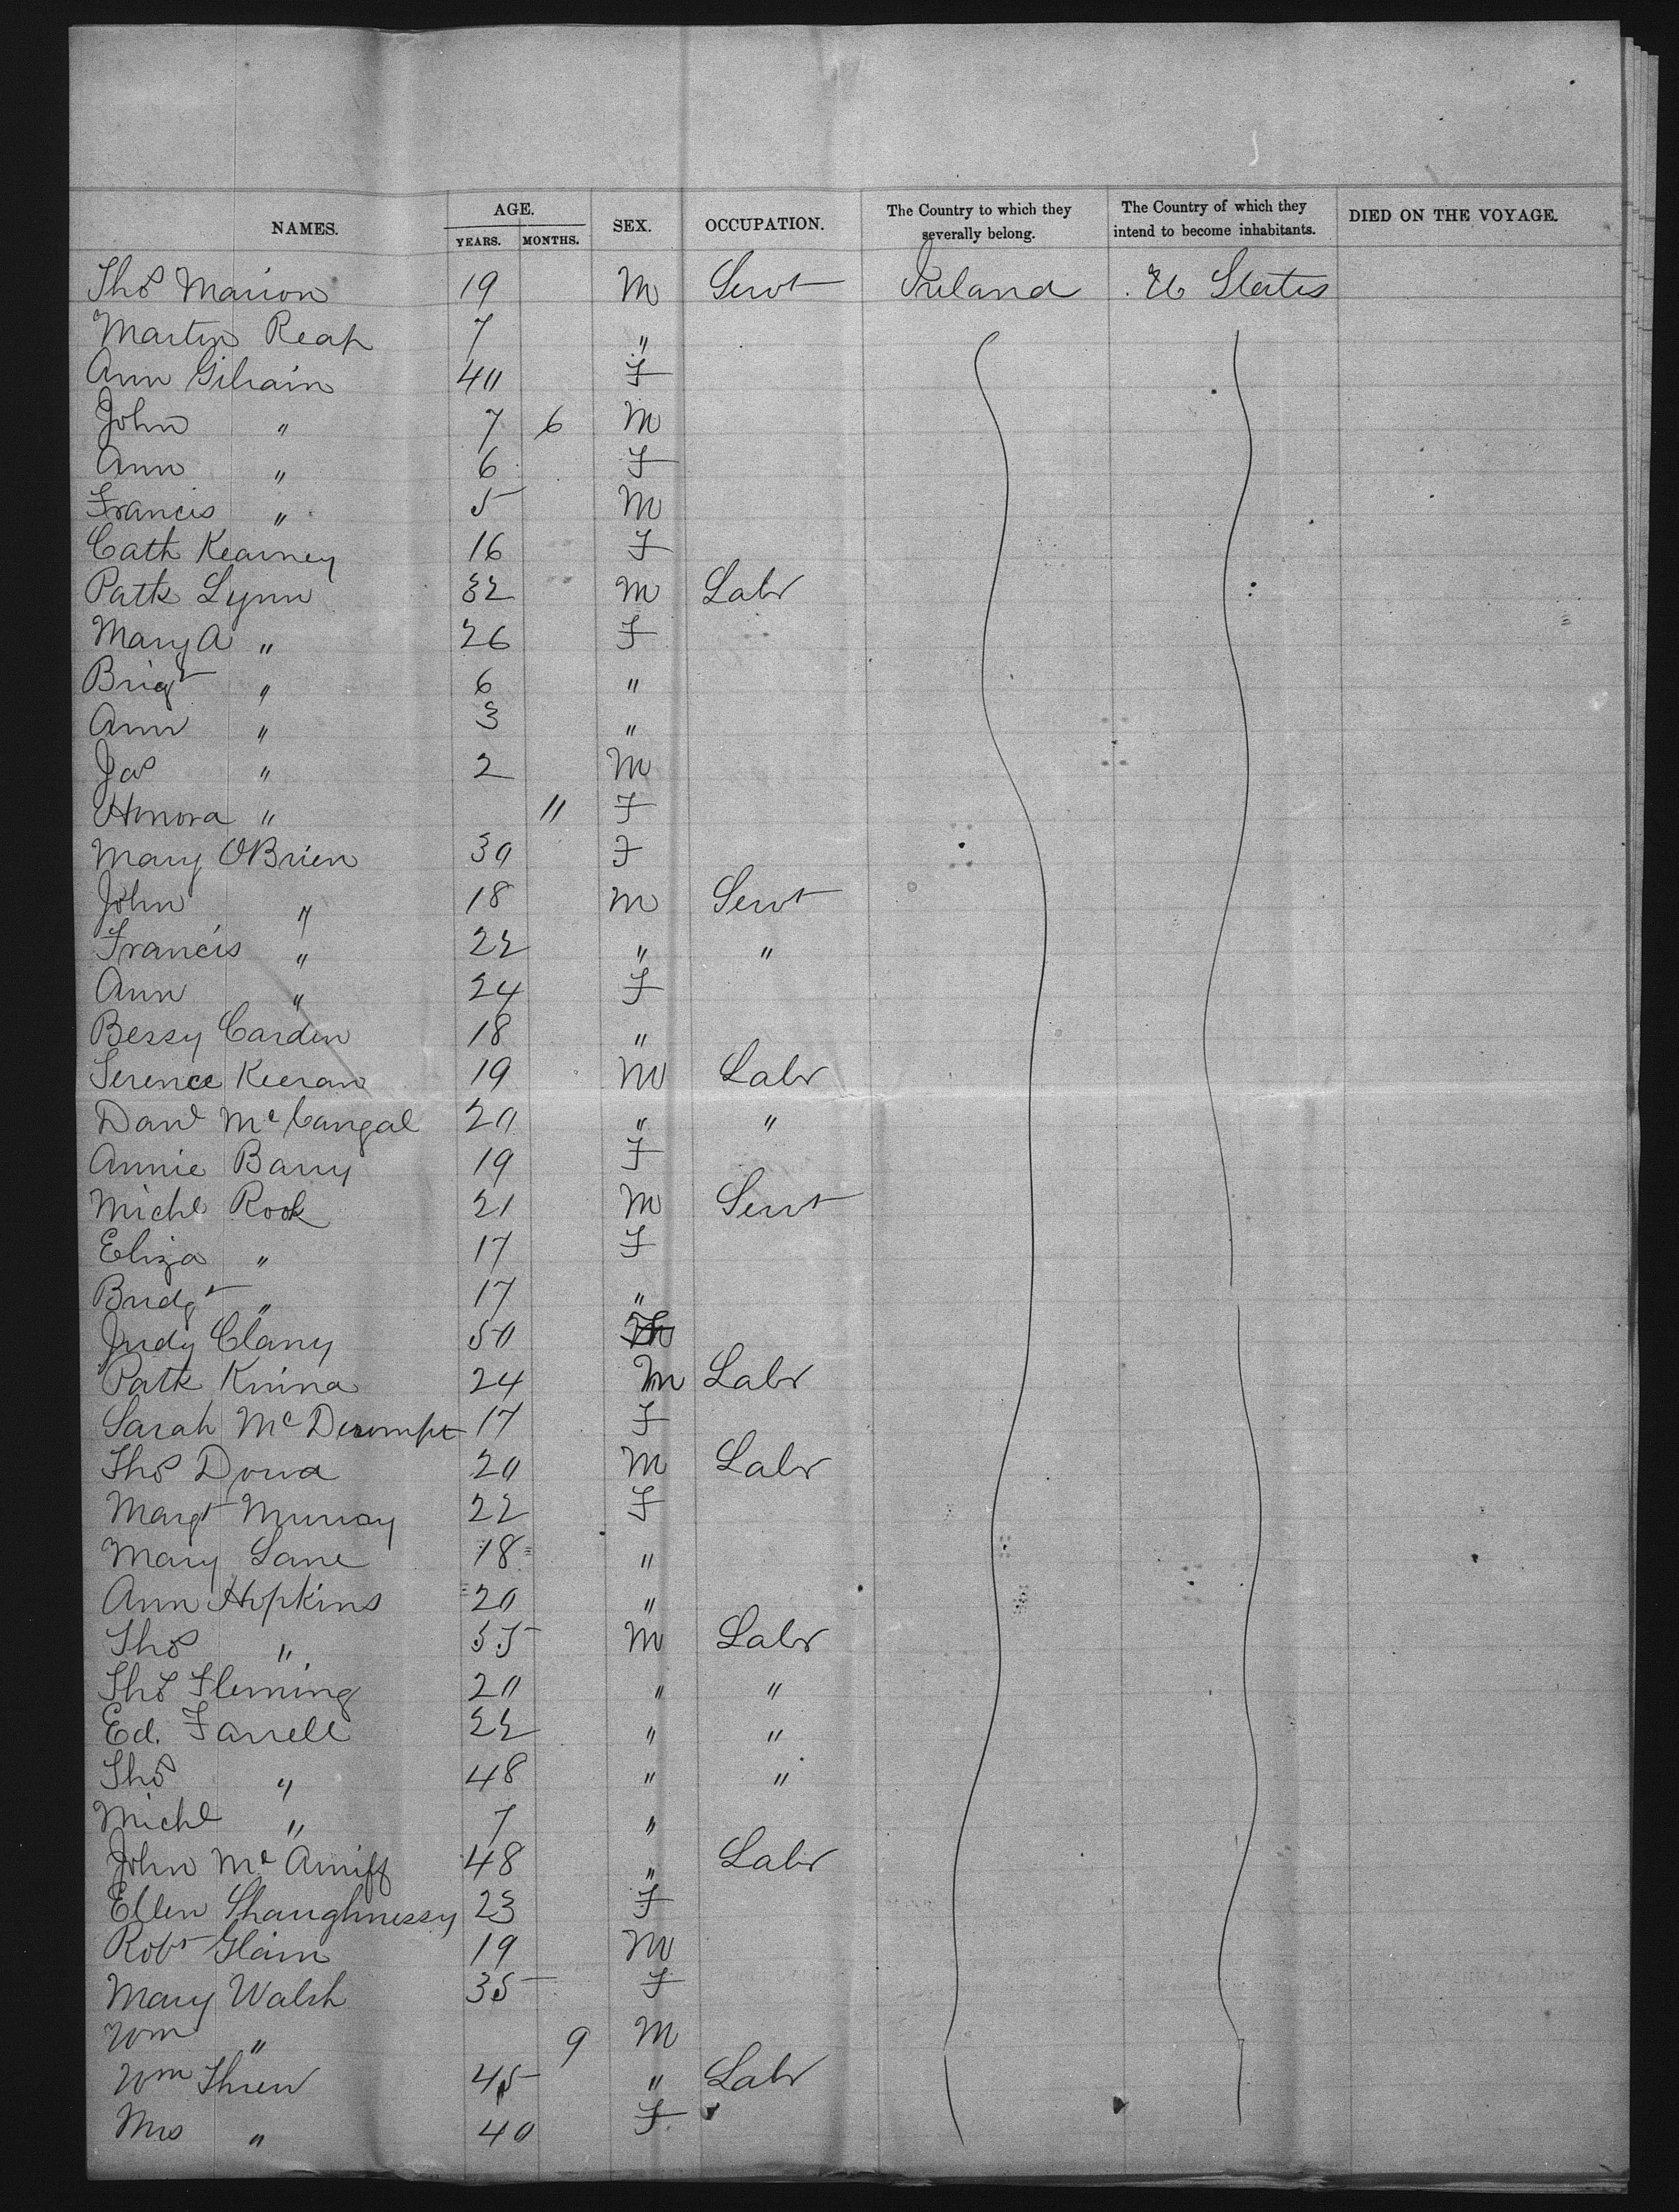 NAMES. AGE. YEARS. MONTHS. SEX. OCCUPATION. The Country to which they severally belong. The Country of which they intend to become inhabitants. DIED ON THE VOYAGE.
Thos Marion 19 M Servt Ireland U States
Martin Reap 7 "
Ann Gilrain 40 F
John " 7 6 M
Ann " 6 F
Francis " 5 M
Cath Kearney 16 F
Patk Lynn 32 M Labr
Mary A " 26 F
Brigt " 6 "
Ann " 3 "
Jas " 2 M
Honora " 11 F
Mary OBrien 30 F
John " 18 M Servt
Francis " 22 " "
Ann " 24 F
Bessy Carden 18 "
Terence Keeran 19 M Labr
Danl McCangal 20 " "
Annie Barry 19 F
Michl Rook 21 M Servt
Eliza " 17 F
Bridgt " 17 "
Judy Clany 50
Patk Kinna 24 M Labr
Sarah McDerompt 17 F
Thos Dowd 20 M Labr
Margt Murray 22 F
Mary Lane 18 "
Ann Hopkins 20 "
Thos " 55 M Labr
Thos Fleming 20 " "
Ed. Farrell 22 " "
Thos " 48 " "
Michl " 7 "
John McAniff 48 " Labr
Ellen Shaughnessy 23 F
Robt Glain 19 M
Mary Walsh 35 F
Wm " 9 M
Wm Threw 45 " Labr
Mrs " 40 F